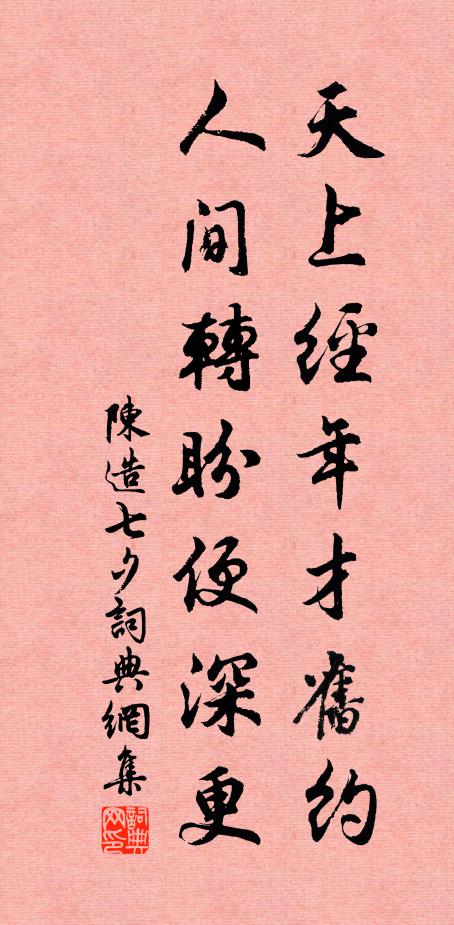 天上經年才舊約
人間轉盼便深更
陳造七夕詞典網集
詞典网印